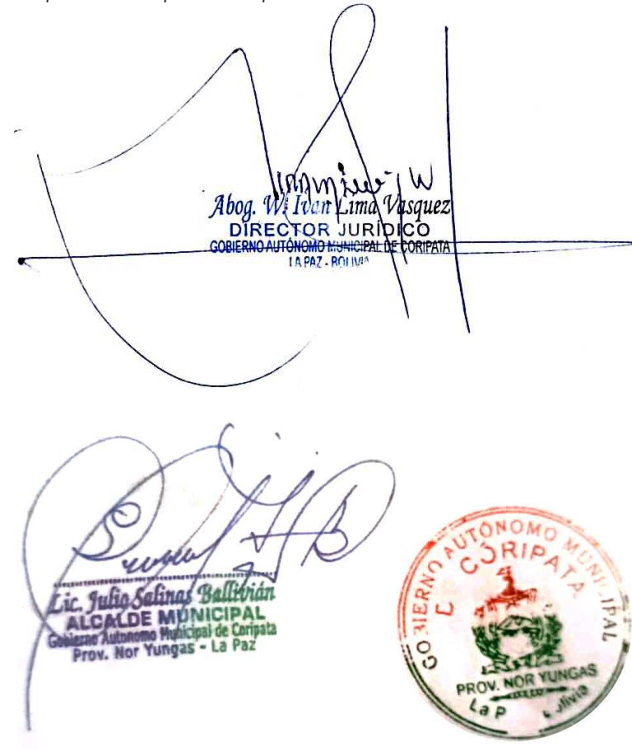 Abog. W. Ivan Lima Vasquez
DIRECTOR JURÍDICO
GOBIERNO AUTÓNOMO MUNICIPAL DE CORIPATA
LA PAZ - BOLIVIA
Lic. Julio Salinas Ballivián
ALCALDE MUNICIPAL
Gobierno Autonomo Municipal de Coripata
Prov. Nor Yungas - La Paz
GOBIERNO AUTÓNOMO MUNICIPAL
CORIPATA
PROV. NOR YUNGAS